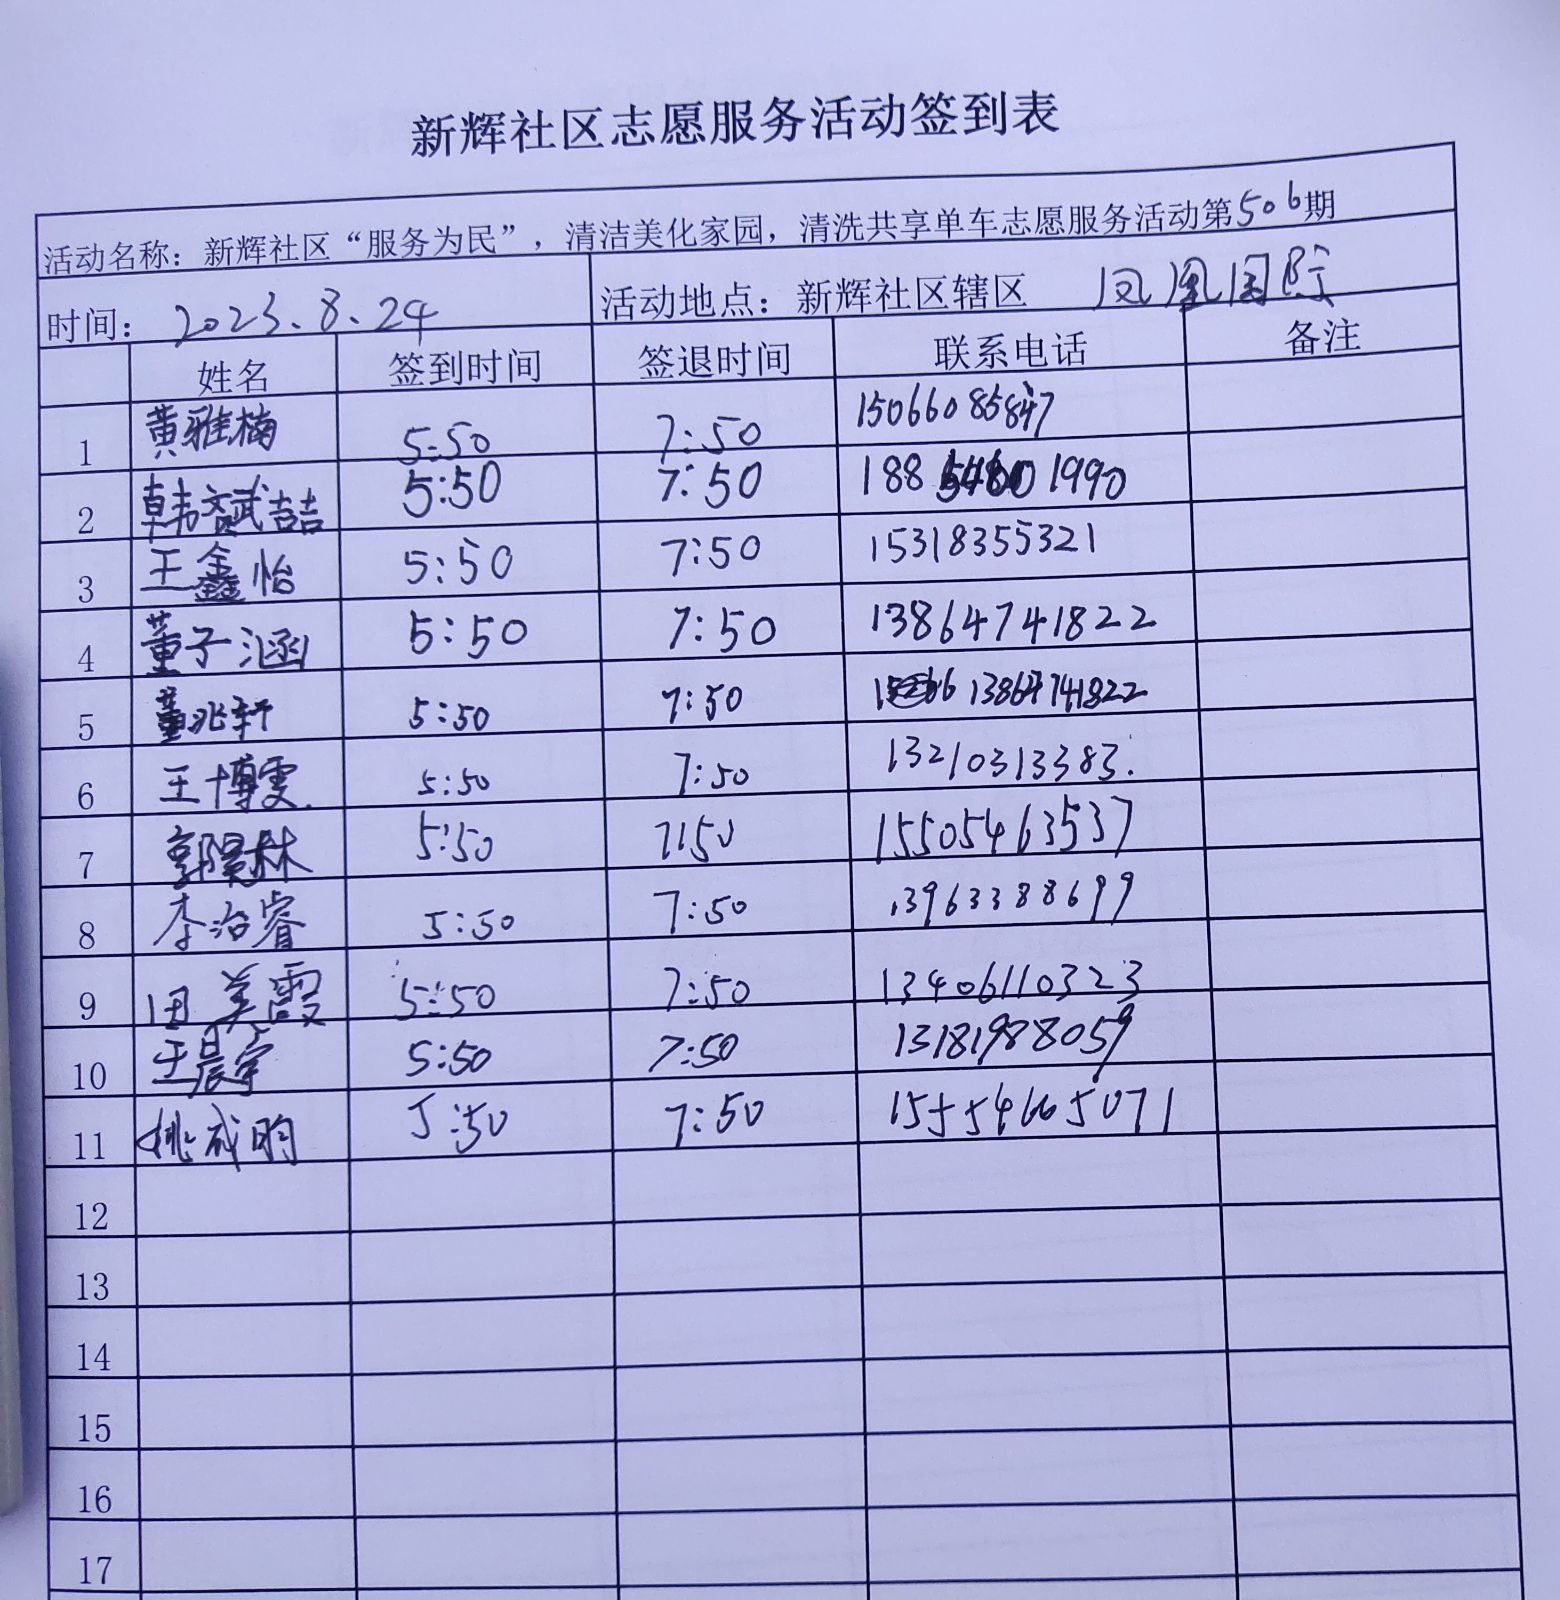 新辉社区志愿服务活动签到表
活动名称：新辉社区“服务为民”，清洁美化家园，清洗共享单车志愿服务活动第506期
时间：2023.8.24 活动地点：新辉社区辖区 凤凰国际
姓名 签到时间 签退时间 联系电话 备注
1 黄雅楠 5:50 7:50 15066085847
2 韩 5:50 7:50 188 1990
3 王鑫怡 5:50 7:50 15318355321
4 董子涵 5:50 7:50 13864741822
5 董兆轩 5:50 7:50 13864741822
6 王博雯. 5:50 7:50 13210313383.
7 郭昊林 5:50 7:50 15505463537
8 李治睿 5:50 7:50 13963388699
9 田美霞 5:50 7:50 13406110323
10 王晨宇 5:50 7:50 13181988059
11 姚成昀 5:50 7:50 15554665071
12
13
14
15
16
17